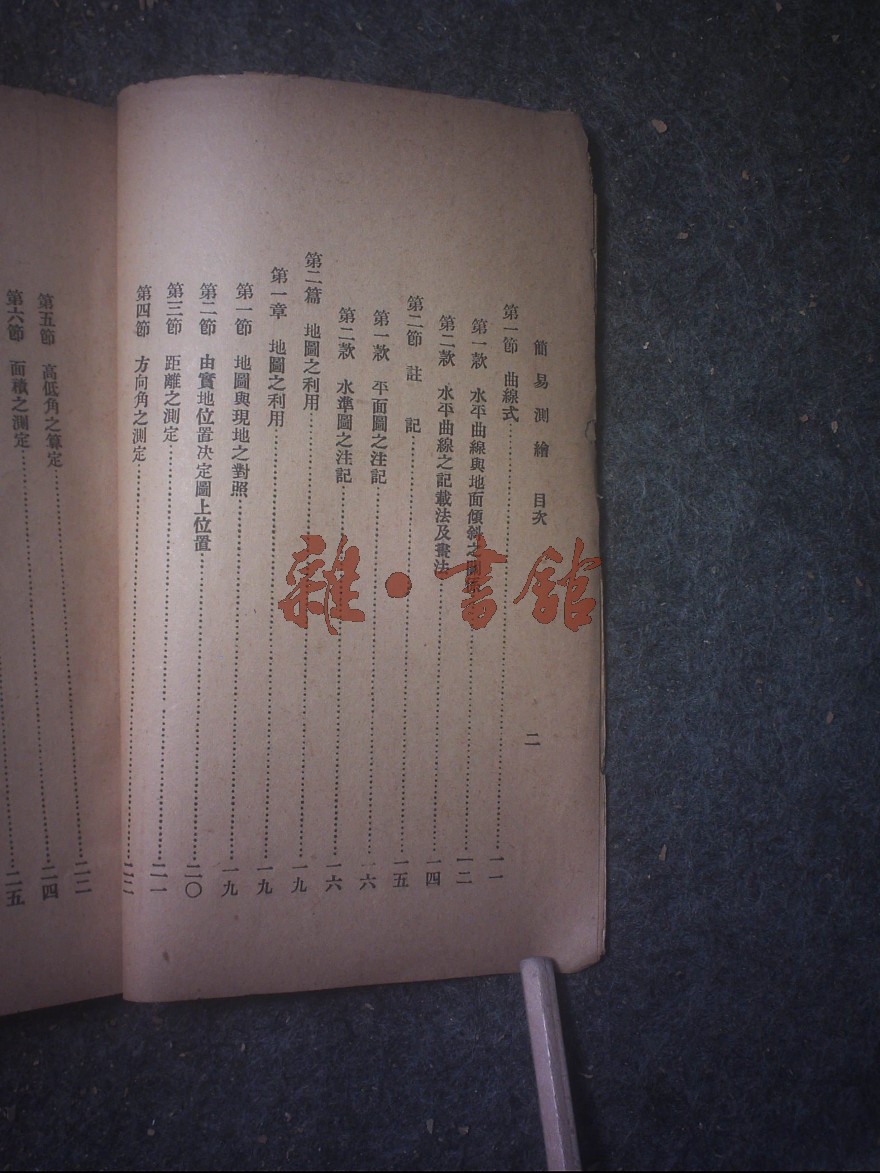 簡易測繪 目次 二
第一節 曲線式………一一
第一款 水平曲線與地面傾斜之關係………一二
第二款 水平曲線之記載法及畫法………一四
第二節 註 記………一五
第一款 平面圖之注記………一六
第二款 水準圖之注記………一六
第二篇 地圖之利用………一九
第一章 地圖之利用………一九
第一節 地圖與現地之對照………一九
第二節 由實地位置决定圖上位置………二〇
第三節 距離之測定………二一
第四節 方向角之測定………二二
二二
第五節 高低角之算定………二四
第六節 面積之測定………二五
雜·書館